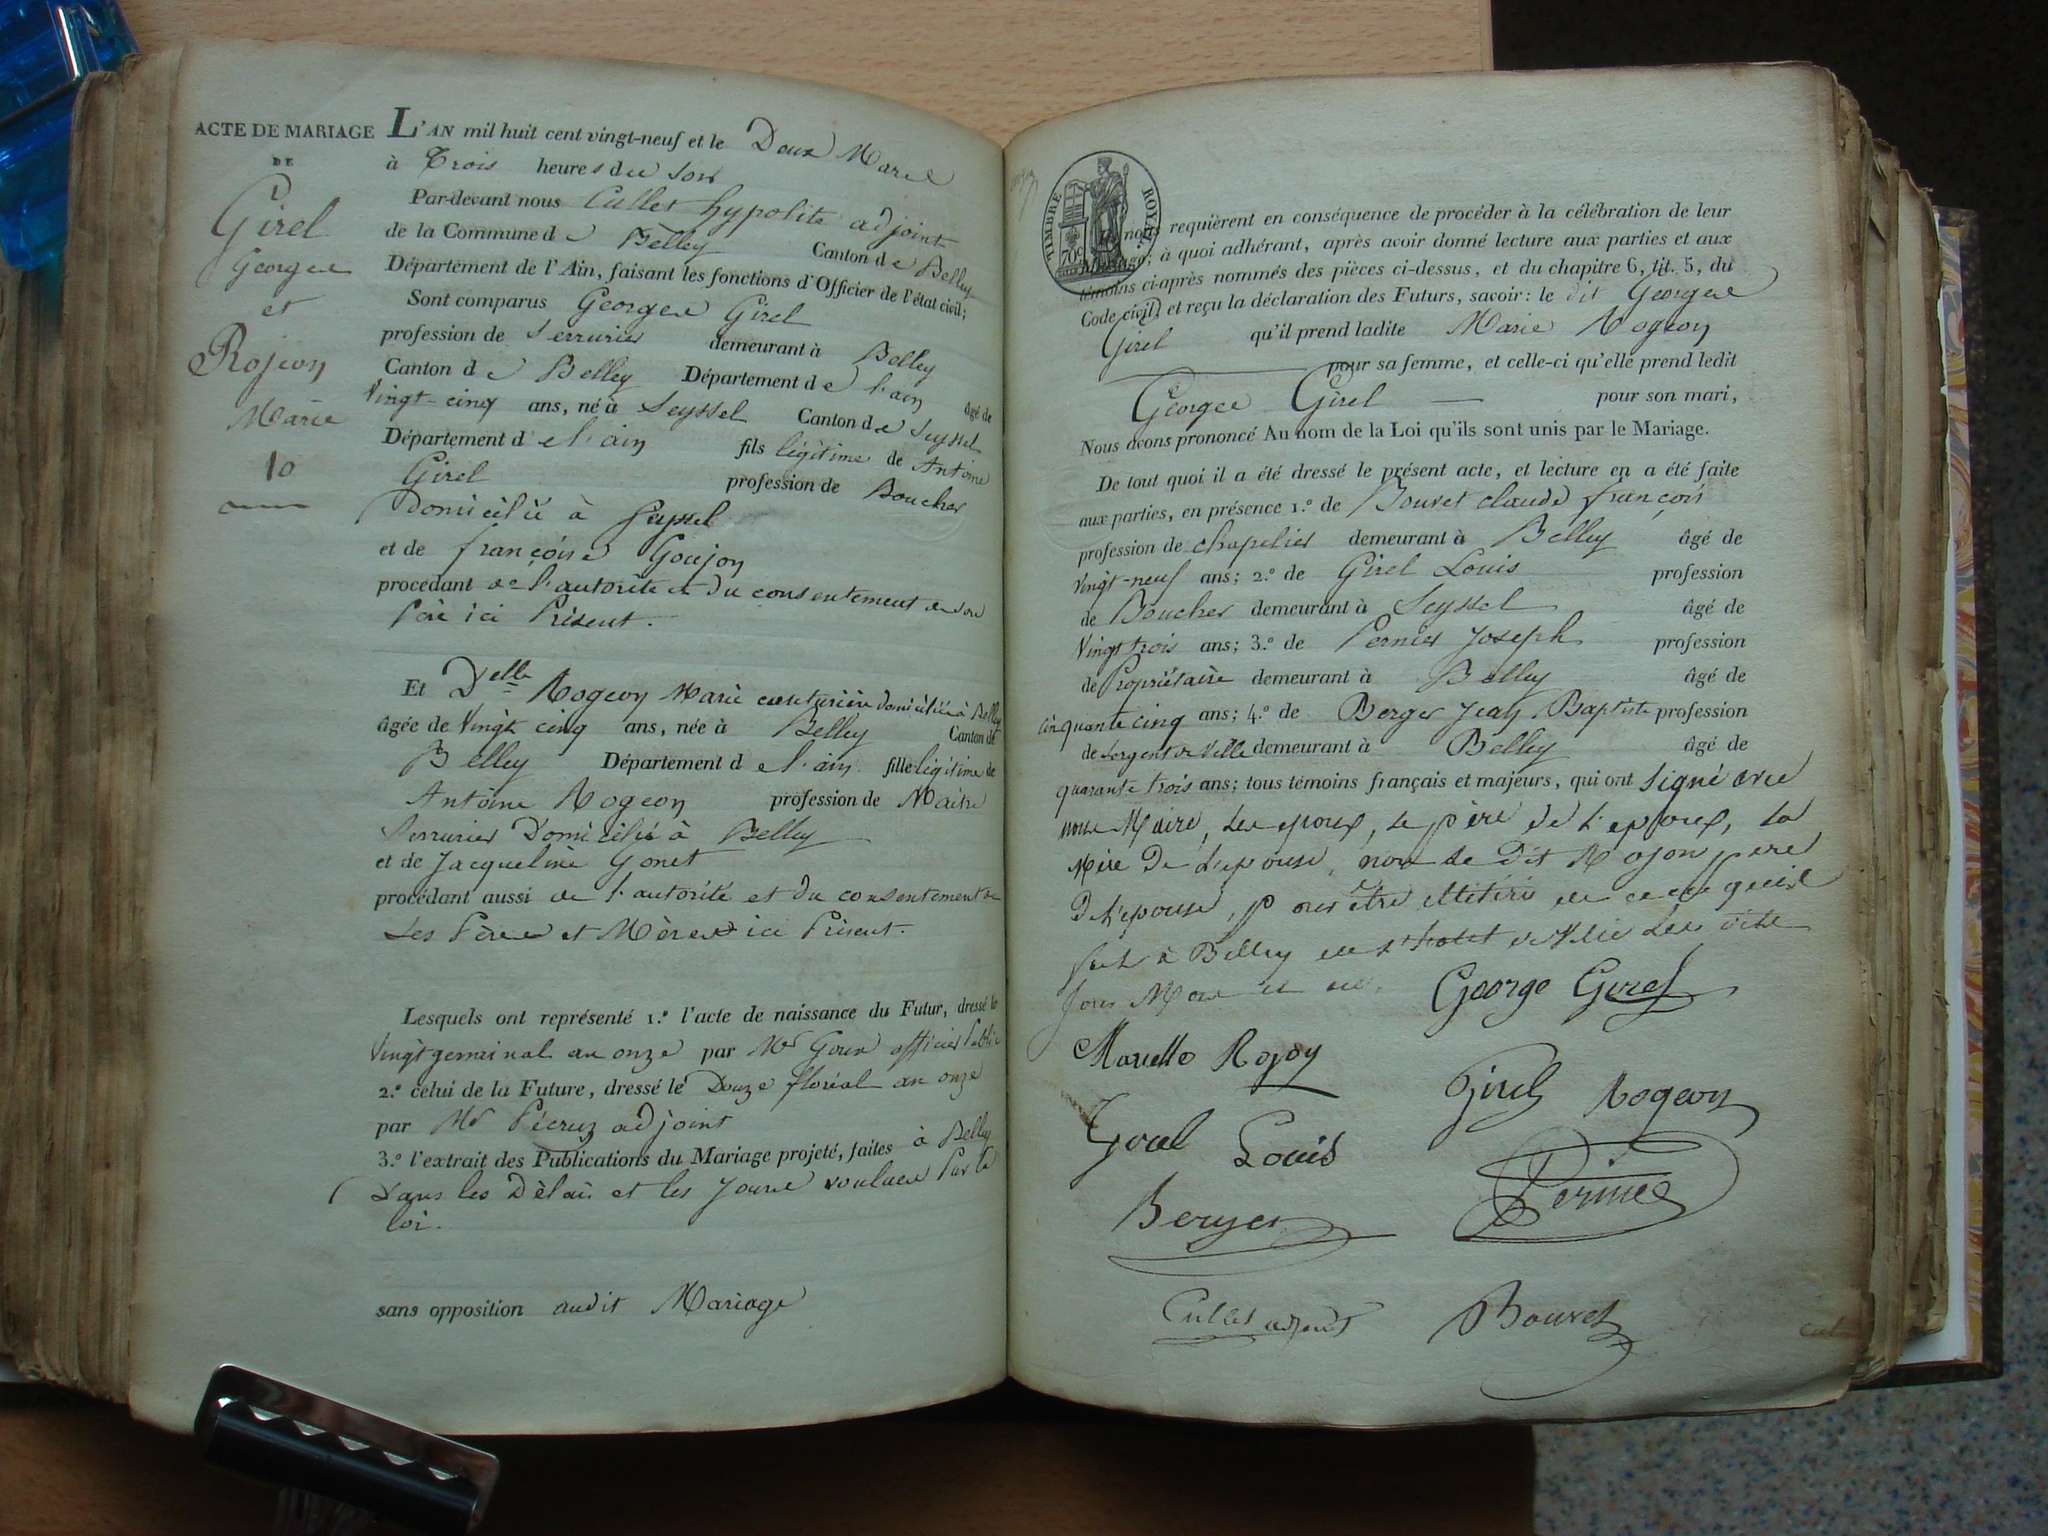 ACTE DE MARIAGE
DE
Girel
George
et
Rojeon
Marie
10
L'AN mil huit cent vingt-neuf et le Deux Mars
à Trois heures du soir
Par-devant nous Cullet hypolite adjoint
de la Commune de Belley Canton de Belley
Département de l'Ain, faisant les fonctions d'Officier de l'état civil;
Sont comparus George Girel
profession de Serrurier demeurant à Belley
Canton de Belley Département de l'ain âgé de
Vingt-cinq ans, né à Seyssel Canton de Seyssel
Département de l'ain fils légitime de Antoine
Girel profession de Boucher
Domicilié à Seyssel
et de françoise Goujon
procédant de l'autorité et du consentement de son
Père ici Présent.
Et Delle Rogeon Marie couturière domiciliée à Belley
âgée de Vingt cinq ans, née à Belley Canton de
Belley Département de l'ain fille légitime de
Antoine Rogeon profession de Maitre
Serrurier Domicilié à Belley
et de Jacqueline Gonet
procédant aussi de l'autorité et du consentement de
Ses Père et Mère ici Présent.
Lesquels ont représenté 1.º l'acte de naissance du Futur, dressé le
Vingt germinal an onze par Mr officier Public
2.º celui de la Future, dressé le Douze floréal an onze
par Mr adjoint
3.º l'extrait des Publications du Mariage projeté, faites à Belley
Dans les Délais et les Jours voulues Par la
loi.
sans opposition audit Mariage
TIMBRE ROYAL
70c
nous requièrent en conséquence de procéder à la célébration de leur
Mariage; à quoi adhérant, après avoir donné lecture aux parties et aux
témoins ci-après nommés des pièces ci-dessus, et du chapitre 6, tit. 5, du
Code civil, et reçu la déclaration des Futurs, savoir: le dit George
Girel qu'il prend ladite Marie Rogeon
pour sa femme, et celle-ci qu'elle prend ledit
George Girel — pour son mari,
Nous avons prononcé Au nom de la Loi qu'ils sont unis par le Mariage.
De tout quoi il a été dressé le présent acte, et lecture en a été faite
aux parties, en présence 1.º de Bouvet claude françois
profession de chapelier demeurant à Belley âgé de
vingt-neuf ans; 2.º de Girel Louis profession
de Boucher demeurant à Seyssel âgé de
Vingt trois ans; 3.º de Pernier Joseph profession
de Propriétaire demeurant à Belley âgé de
cinquante cinq ans; 4.º de Berger Jean Baptiste profession
de Sergent de Ville demeurant à Belley âgé de
quarante trois ans; tous témoins français et majeurs, qui ont signé avec
nous Maire, les epoux, le père de l'epoux, la
Mère De l'epouse, non le dit Rojon père
De l'epouse, pour être illitéré de ce requis
fait à Belley en l'hotel de Ville les dits
Jour Mois et an.
George Girel
Mariette Rojon
Girel Rogeon
Girel Louis
Pernier
Berger
Cullet adjoint
Bouvet